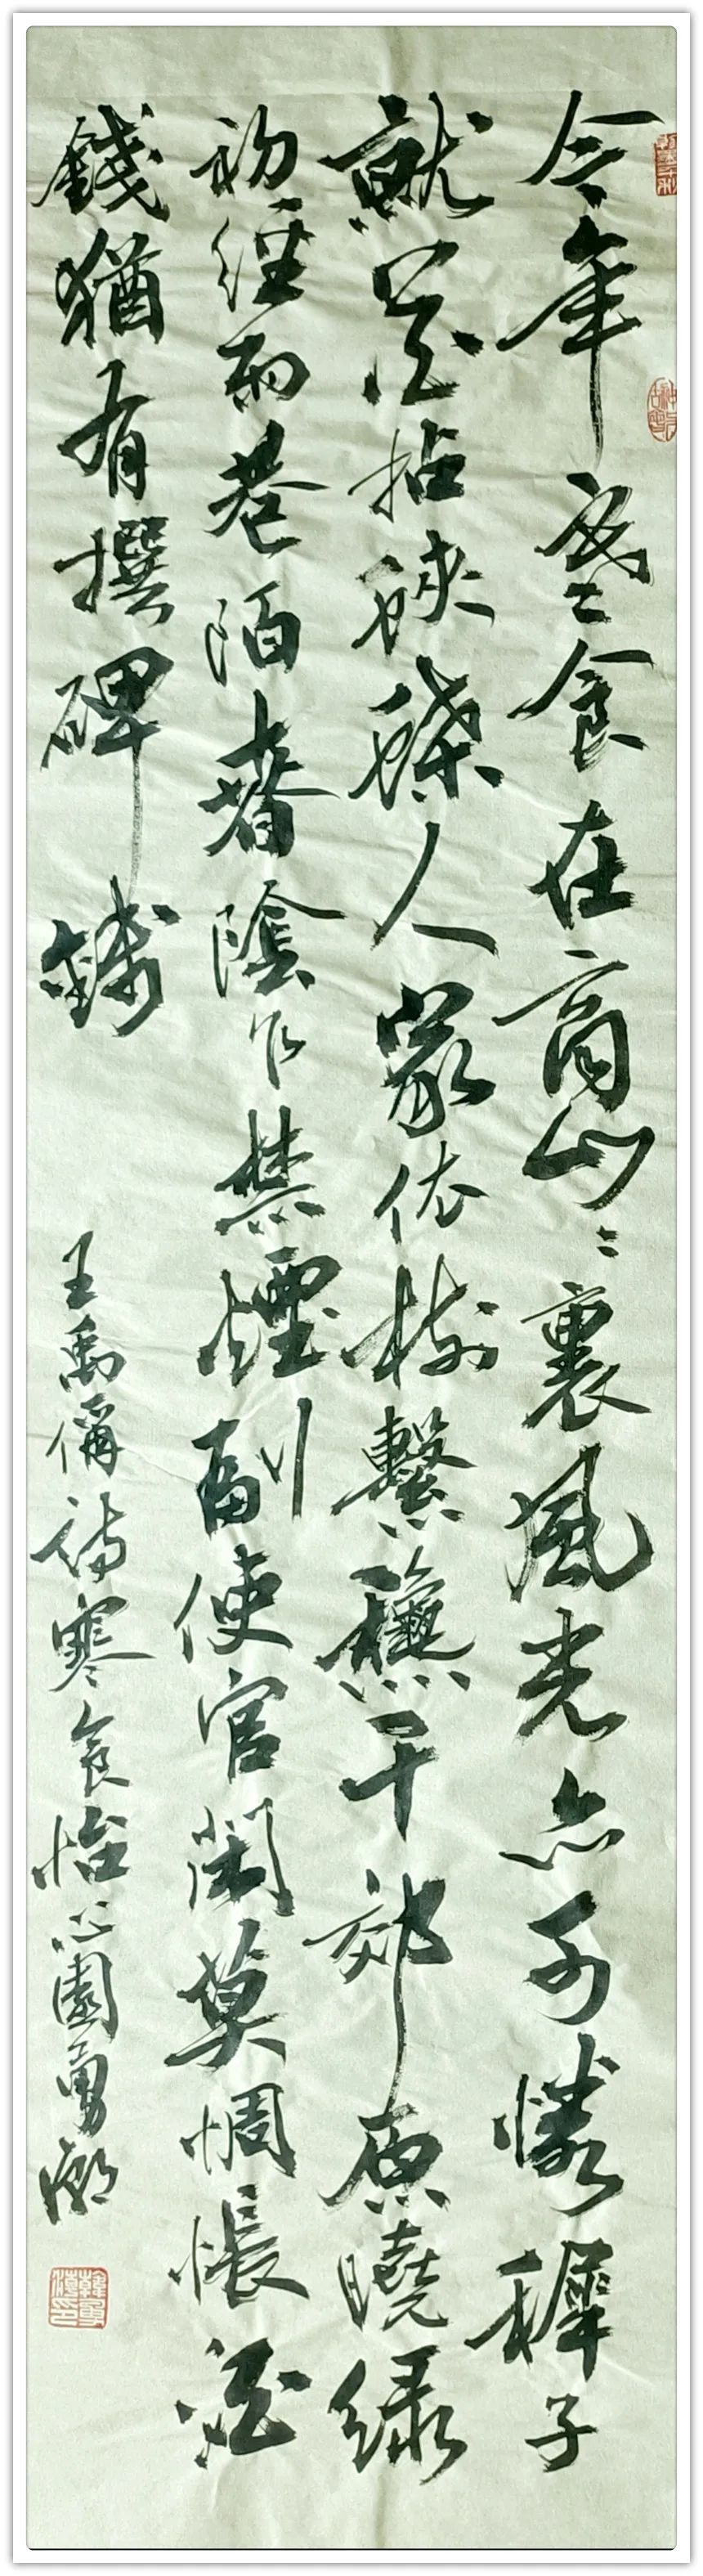 今年寒食在商山〻裏風光亦可憐稺子
就花拈蛺蝶人家依樹繫龝千郊原曉綠
初經雨巷陌春陰乍禁煙副使官閑莫惆悵酒
錢猶有撰碑錢
王禹偁詩寒食怡心園勇